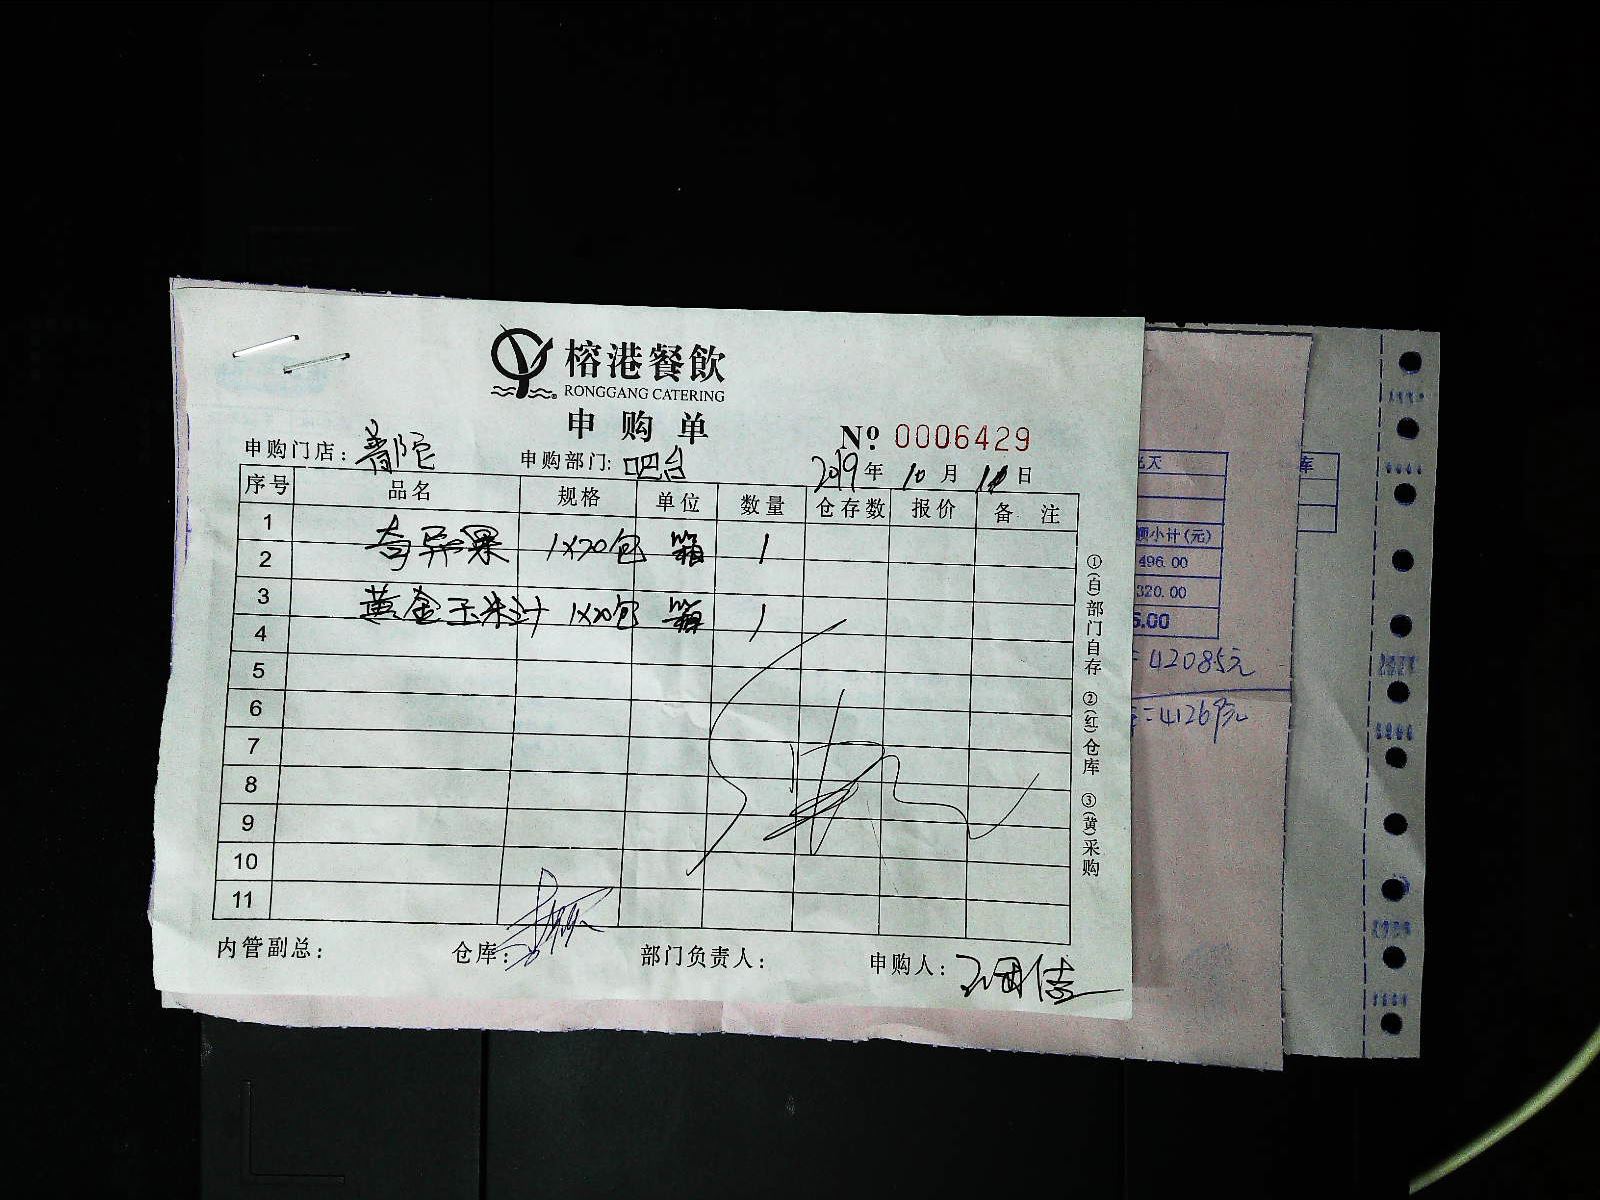 榕港餐飲
RONGGANG CATERING
申购单
№ 0006429
申购门店：普陀 申购部门：吧台 2019年10月10日
序号 品名 规格 单位 数量 仓存数 报价 备注
1 奇异果 1×20包 箱 1
2
3 黄金玉米汁 1×20包 箱 1
4
5
6
7
8
9
10
11
内管副总： 仓库： 部门负责人： 申购人：
①(白)部门自存 ②(红)仓库 ③(黄)采购
天
库
额小计(元)
496.00
320.00
6.00
=42085元